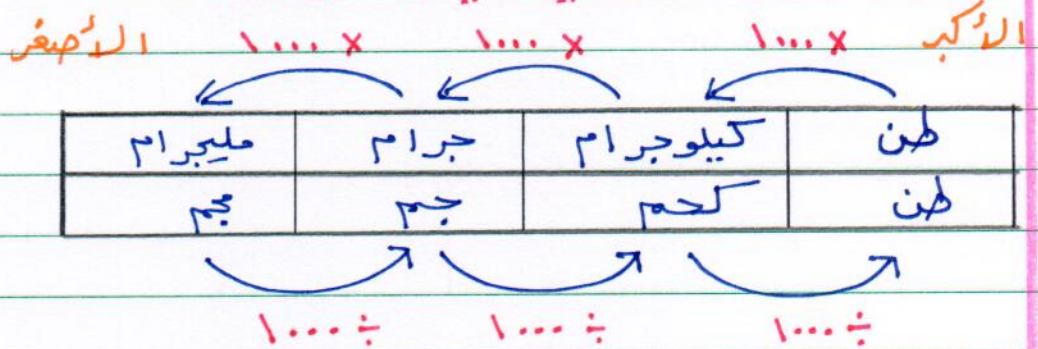 الأكبر × ١٠٠٠ × ١٠٠٠ × ١٠٠٠ الأصغر
طن كيلوجرام جرام مليجرام
طن كجم جم مجم
÷ ١٠٠٠ ÷ ١٠٠٠ ÷ ١٠٠٠